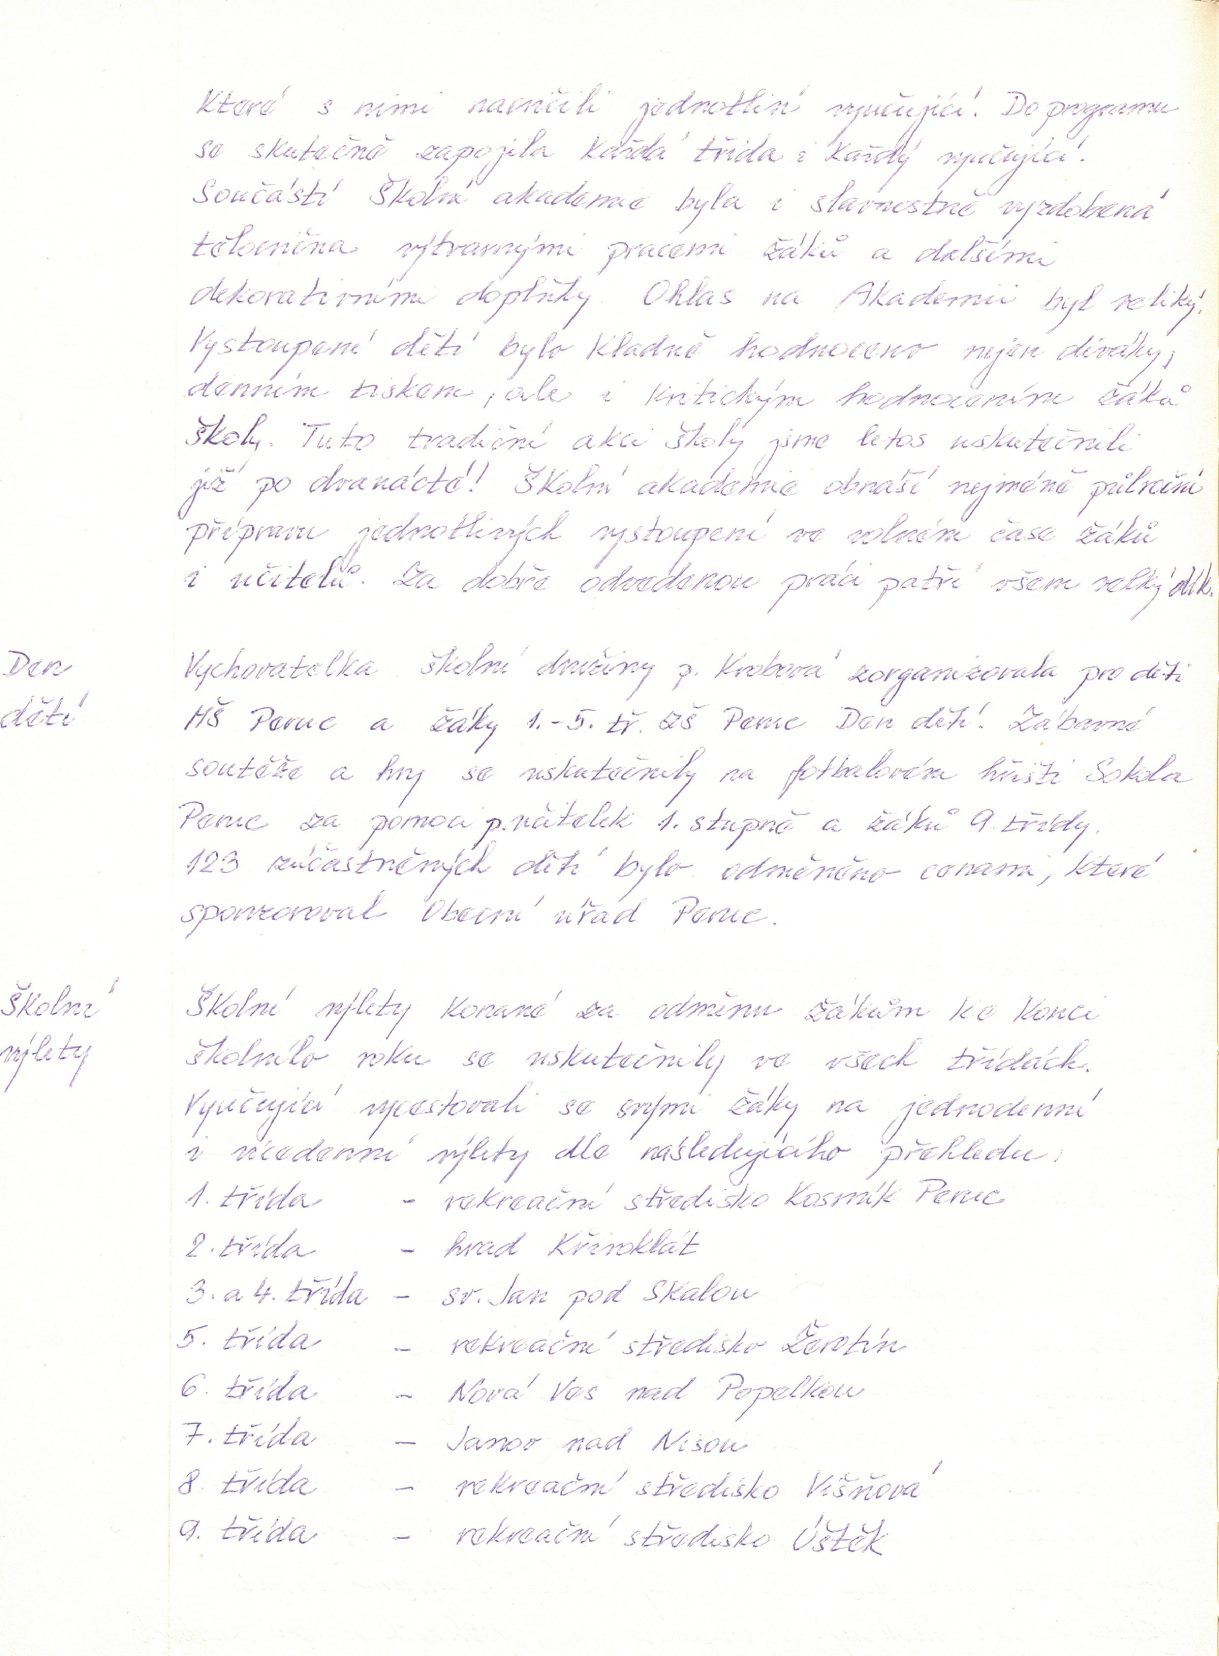 které s nimi nacvičili jednotliví vyučující. Do programu
se skutečně zapojila každá třída i každý vyučující.
Součástí Školní akademie byla i slavnostně vyzdobená
tělocvična výtvarnými pracemi žáků a dalšími
dekorativními doplňky. Ohlas na Akademii byl veliký.
Vystoupení dětí bylo kladně hodnoceno nejen diváky,
denním tiskem, ale i kritickým hodnocením žáků
školy. Tuto tradiční akci školy jsme letos uskutečnili
již po dvanácté! Školní akademie obnáší nejméně půlroční
přípravu jednotlivých vystoupení ve volném čase žáků
i učitelů. Za dobře odvedenou práci patří všem velký dík.
Den
dětí
Vychovatelka školní družiny p. Krobová zorganizovala pro děti
MŠ Peruc a žáky 1.-5. tř. ZŠ Peruc Den dětí. Zábavné
soutěže a hry se uskutečnily na fotbalovém hřišti Sokola
Peruc za pomoci p. učitelek 1. stupně a žáků 9. třídy.
123 zúčastněných dětí bylo odměněno cenami, které
sponzoroval Obecní úřad Peruc.
Školní
výlety
Školní výlety konané za odměnu žákům ke konci
školního roku se uskutečnily ve všech třídách.
Vyučující vycestovali se svými žáky na jednodenní
i vícedenní výlety dle následujícího přehledu:
1. třída - rekreační středisko Kosmík Peruc
2. třída - hrad Křivoklát
3. a 4. třída - sv. Jan pod Skalou
5. třída - rekreační středisko Žerotín
6. třída - Nová Ves nad Popelkou
7. třída - Janov nad Nisou
8. třída - rekreační středisko Višňová
9. třída - rekreační středisko Úštěk